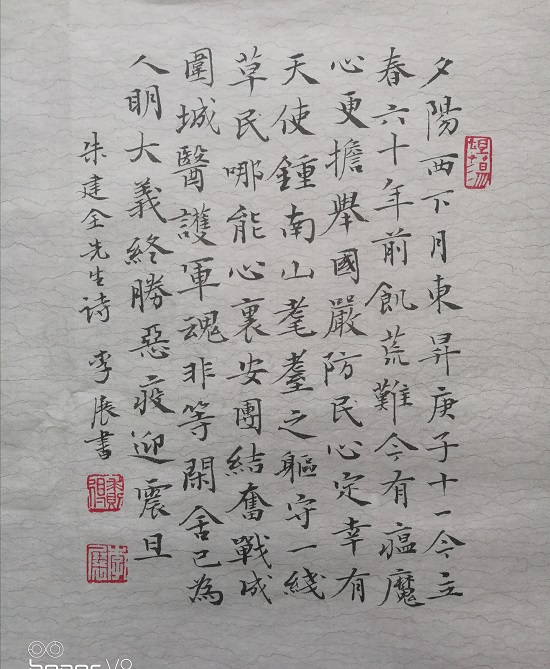 夕陽西下月東昇庚子十一今立
春六十年前飢荒難今有瘟魔
心更擔舉國嚴防民心定幸有
天使鍾南山耄耋之軀守一綫
草民哪能心裏安團結奮戰成
圍城醫護軍魂非等閑舍已為
人明大義終勝惡疫迎震旦
朱建全先生詩 李展書